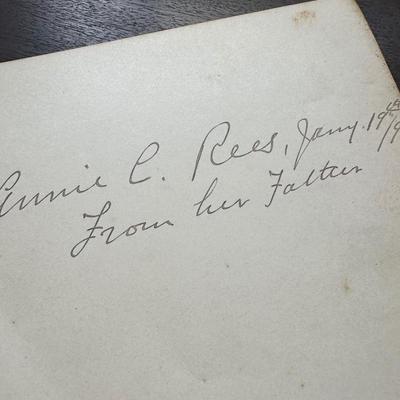 Annie C. Rees, Jany. 19th
From her Father